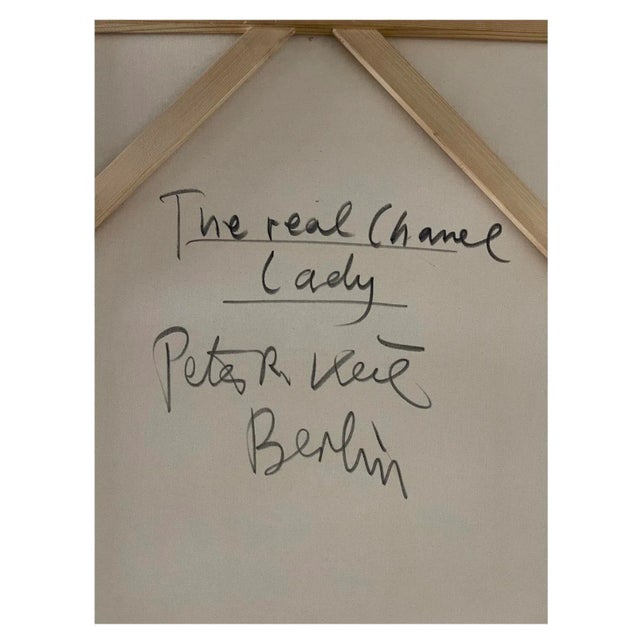 The real Chanel
Lady
Peter R. Keil
Berlin